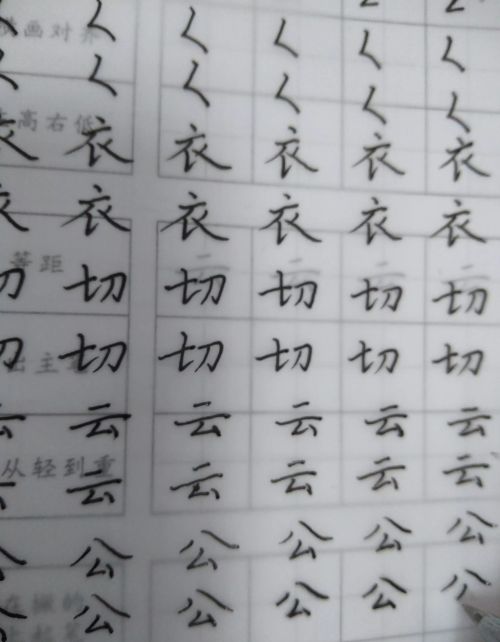 画对齐
く く く く く
く く く く く
高右低
衣 衣 衣 衣 衣
衣 衣 衣 衣 衣
等距
切 切 切 切 切
出主
切 切 切 切 切
云 云 云 云 云
从轻到重
云 云 云 云 云
公 公 公 公 公
在撇的
公 公 公 公